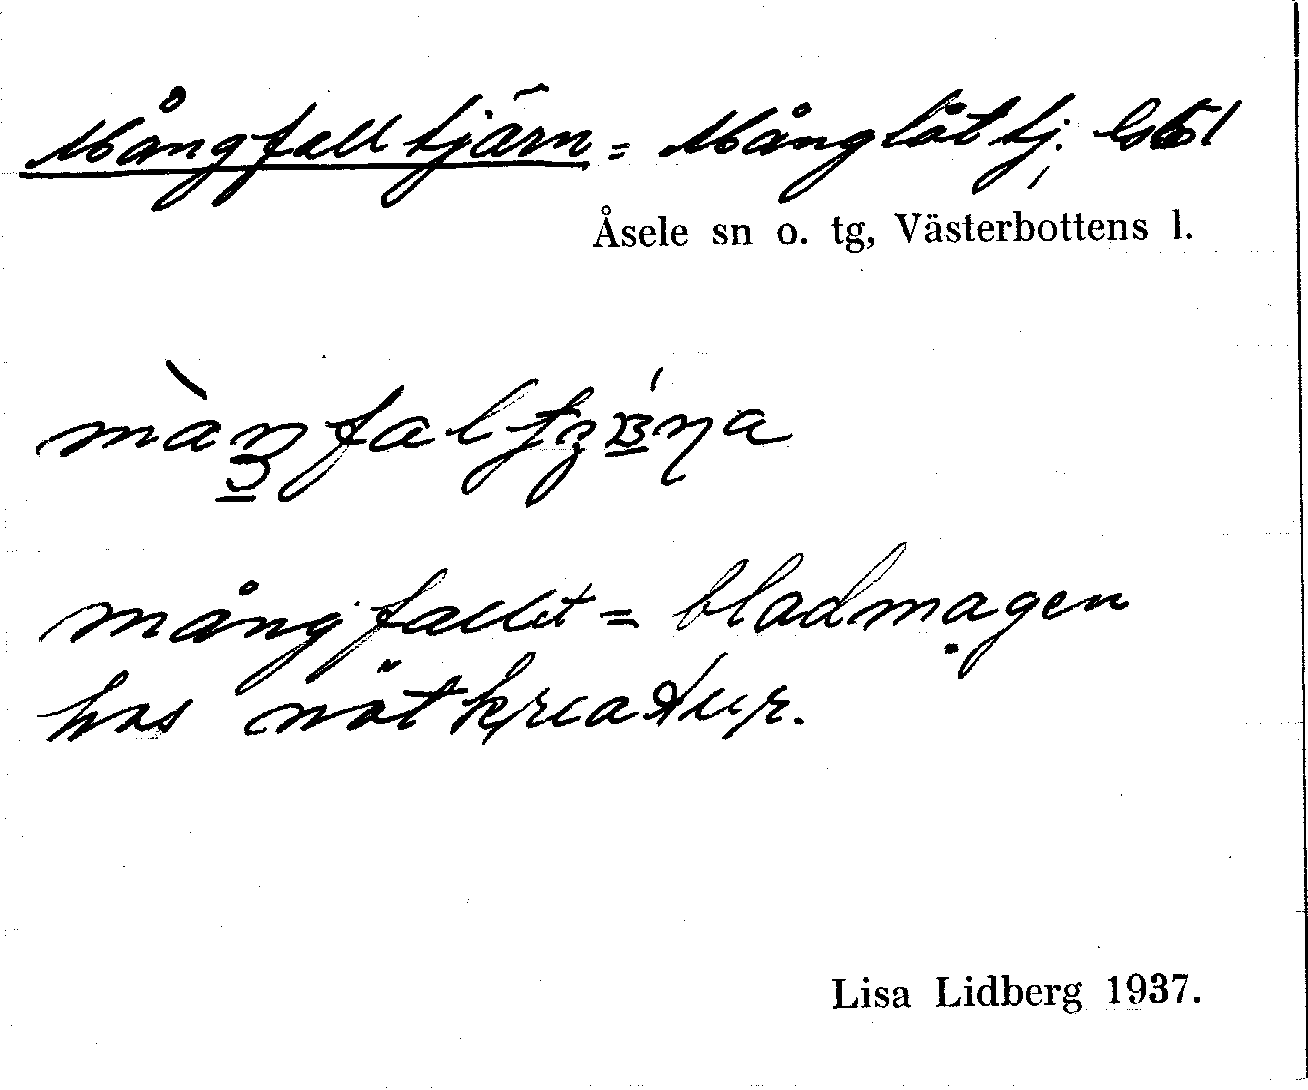 Mångfalltjärn = Månglåttj.
Åsele sn o. tg, Västerbottens l.
mångfallet = bladmagen
hos nötkreatur.
Lisa Lidberg 1937.